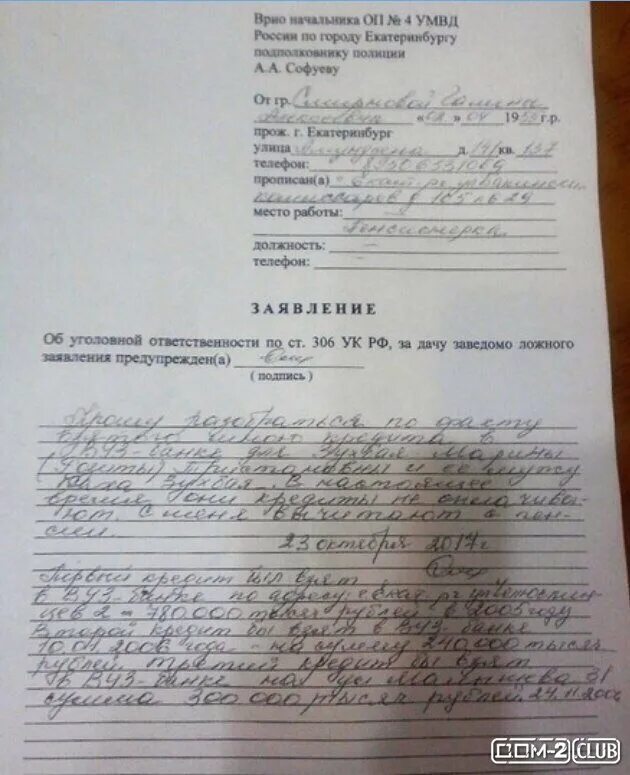 Врио начальника ОП № 4 УМВД
России по городу Екатеринбургу
подполковнику полиции
А.А. Софуеву
От гр. Смирновой Галины
«08» 04 19 г.р.
прож. г. Екатеринбург
улица Амундсена д. 141 кв. 137
телефон:
прописан(а) Екат.
комиссаров д 105 кв 29
место работы:
Пенсионерка
должность:
телефон:
ЗАЯВЛЕНИЕ
Об уголовной ответственности по ст. 306 УК РФ, за дачу заведомо ложного
заявления предупрежден(а)
( подпись )
Прошу разобраться по факту
взятого мною кредита в
ВУЗ-банке для Зухбая Марины
Тристановны и её мужу
Каха Зухбая. В настоящее
время они кредиты не оплачива-
ют. С меня вычитают с пен-
сии.
23 октября 2017 г
Первый кредит был взят
в ВУЗ-банке по адресу
2 = 780.000 тысяч рублей в 2005 году
Второй кредит бы взят в ВУЗ-банке
10.01.2006 года - на сумму 240.000 тысяч
рублей третий кредит бы взят
в ВУЗ-банке на ул Малышева 31
сумма 300.000 тысяч рублей 24.11.
ДОМ-2 CLUB